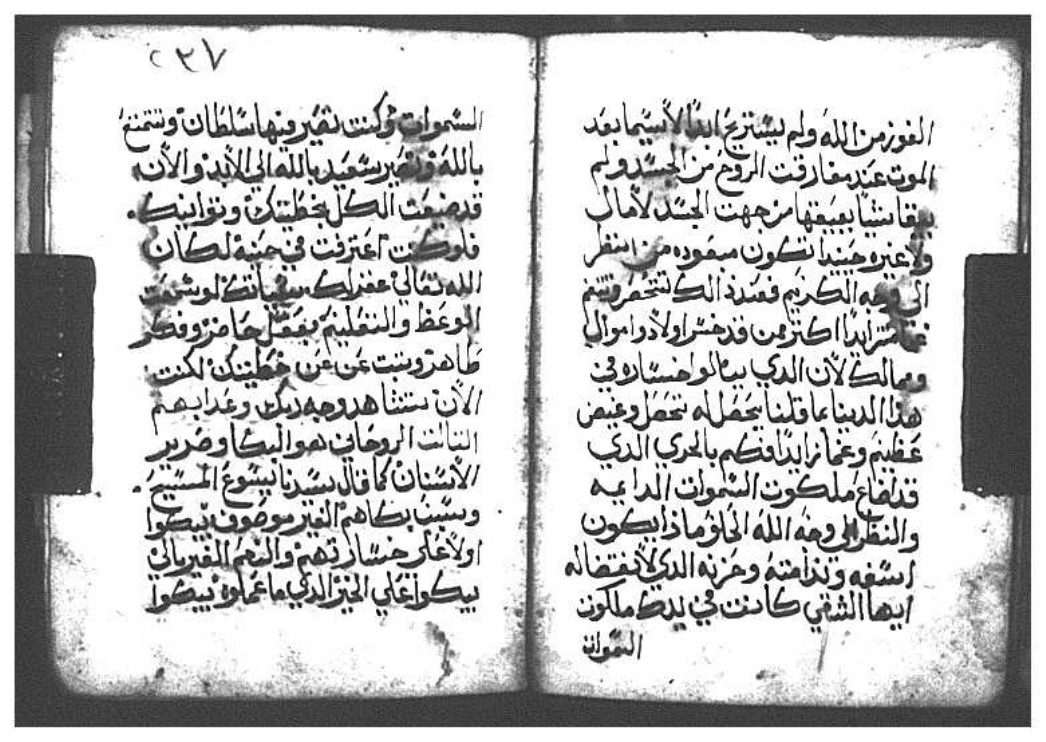 الفوز من الله ولم يستريح ابدًا لاسيما بعد
الموت عند مفارقت الروح من الجسد ولم
من جهت الجسد لا مال
ولا غيره حينيدا تكون من ينظر
الى وجه الكريم فعند ذالك
ابدًا اكتر ممن قد خسر اولاد واموال
وممالك لان الدي خساره في
هدا الدينا ما قلنا يحصل له وغيض
عظيم وغم ابدا فكم بالحري الدي
قد اضاع ملكوت السموات الدايمه
والنظر الى وجه الله الخلق ماذا يكون
اسفه وندامته وحزنه الدي لا انقضا له
ايها الشقي كانت في يدك ملكوت
السموات
٢٣٧
السموات وكنت تصير فيها سلطان وتتمتع
بالله وتصير سعيد بالله الي الابد والان
قد ضيعت الكل بخطيتك وتوانيك
فلو كنت اعترفت في حينه لكان
الله تعالي غفر لك لو سمعت
الوعظ والتعليم بعقل حاضر وفكر
طاهر وتبت عن خطيتك لكنت
الان تشاهد وجه ربك وعدابهم
التالت الروحاني هو البكا وصرير
الاسنان كما قال سيدنا يسوع المسيح
وسبب بكاهم الغير موصوف يبكوا
اولا علي خسارتهم والدهم الغير مالي
يبكوا علي الخير الدي ما عملوه يبكوا